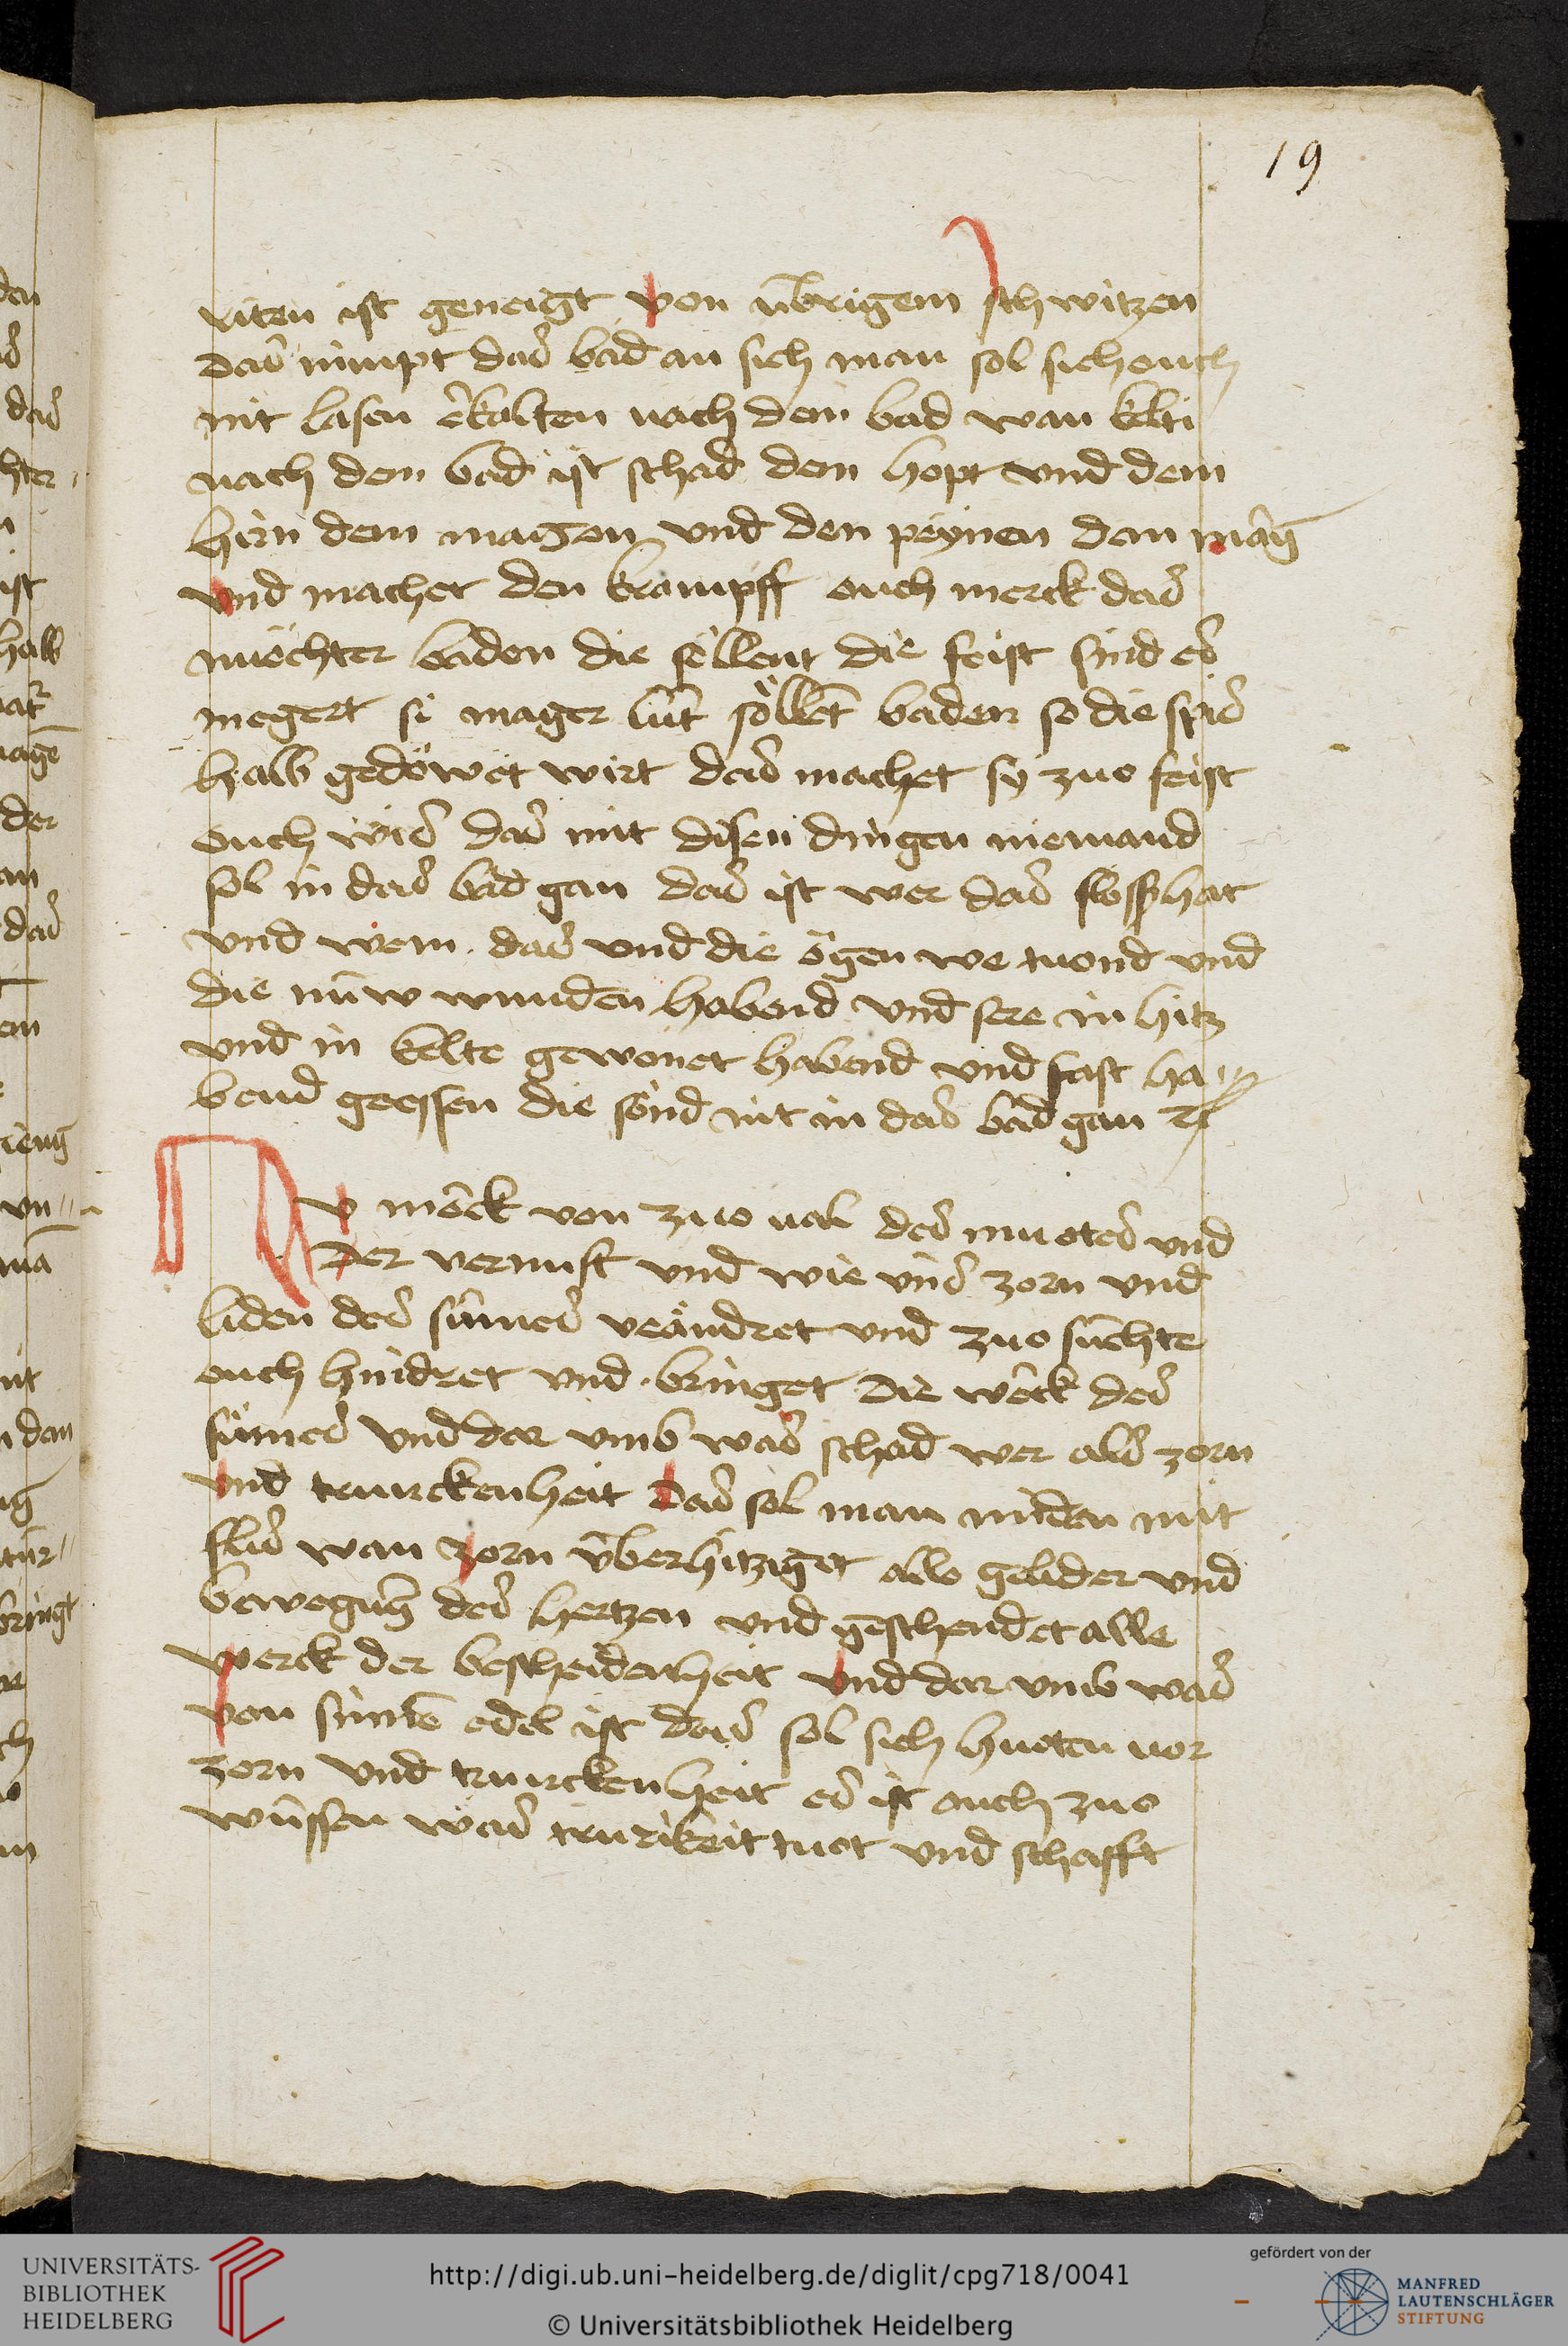 19
riten ist geneigt von übrigem schwitzen
das nimpt das bad an sich man sol sich ouch
nit lasen erkalten nach dem bad wan kelti
nach dem bad ist schad dem hopt vnd dem
hirn dem magen vnd den peynen den mang
vnd machet den krampff ouch merck das
nuechter baden die söllent die feist sind es
megert si mager lüt söllent baden so die spis
halb gedöwet wirt das machet sy zuo feist
ouch wis das mit disen dingen niemand
sol in das bad gan das ist wer das hat
vnd wem das vnd die ögen we tuond vnd
die nüw wunden habend vnd sere in hitz
vnd in kelte gewonet habend vnd fast ha
bend geessen die sönd nit in das bad gan
Nv merck von zuo val des muotes vnd
der vernuft vnd wie vns zorn vnd
liden des sinnes verändret vnd zuo süchte
ouch hindret vnd bringet die werck des
sinnes vnd dar vmb was schad wer als zorn
vnd trunckenheit das sol man miden mit
flis wan zorn überhitziget alle gelider vnd
bewegung des hertzen vnd geschendet alle
werck der bescheidenheit vnd dar vmb was
von sinnen edel ist das sol sich huoten vor
zorn vnd trunckenheit es ist ouch zuo
wüssen was trurikeit tuot vnd schafft
den
das
ist
halb
der
das
vn
dan
bringt
UNIVERSITÄTS-
BIBLIOTHEK
HEIDELBERG
http://digi.ub.uni-heidelberg.de/diglit/cpg718/0041
© Universitätsbibliothek Heidelberg
gefördert von der
MANFRED
LAUTENSCHLÄGER
STIFTUNG